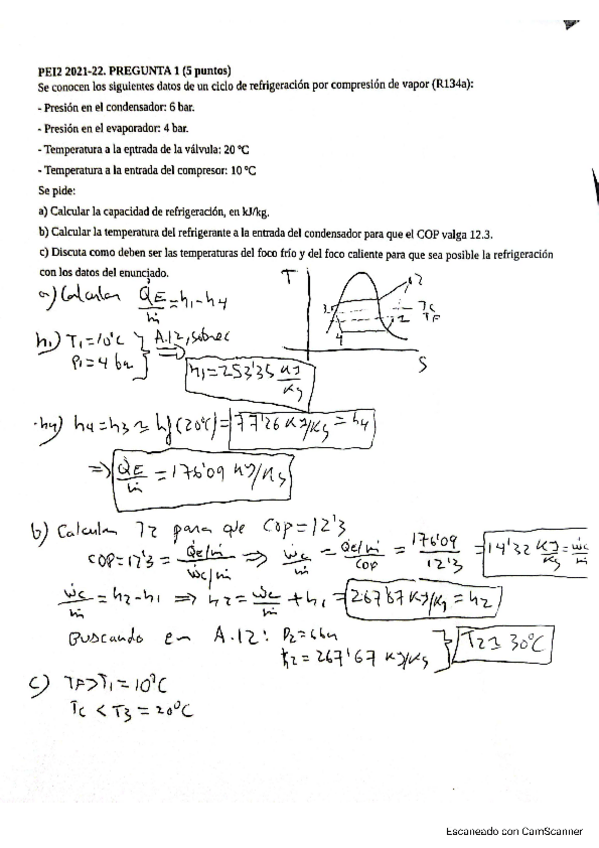 PEI2 2021-22. PREGUNTA 1 (5 puntos)
Se conocen los siguientes datos de un ciclo de refrigeración por compresión de vapor (R134a):
- Presión en el condensador: 6 bar.
- Presión en el evaporador: 4 bar.
- Temperatura a la entrada de la válvula: 20 ºC
- Temperatura a la entrada del compresor: 10 ºC
Se pide:
a) Calcular la capacidad de refrigeración, en kJ/kg.
b) Calcular la temperatura del refrigerante a la entrada del condensador para que el COP valga 12.3.
c) Discuta como deben ser las temperaturas del foco frío y del foco caliente para que sea posible la refrigeración
con los datos del enunciado.
a) Calcular Q̇E/ṁ = h1-h4
T
2
3
Tc
TF
1
4
S
h1) T1=10ºC
P1=4 bar } A.12, sobrec ⇒
h1=253'35 KJ/Kg
·h4) h4=h3≈hf(20ºC)=77'26 KJ/Kg=h4
⇒ Q̇E/ṁ = 176'09 KJ/Kg
b) Calcular T2 para que COP=12'3
COP=12'3 = Q̇e/ṁ / Ẇc/ṁ ⇒ Ẇc/ṁ = Q̇e/ṁ / COP = 176'09 / 12'3 = 14'32 KJ/Kg = Ẇc/ṁ
Ẇc/ṁ = h2-h1 ⇒ h2 = Ẇc/ṁ + h1 = 267'67 KJ/Kg = h2
Buscando en A.12: P2=6bar
h2=267'67 KJ/Kg } T2≃30ºC
c) TF>T1=10ºC
Tc<T3=20ºC
Escaneado con CamScanner